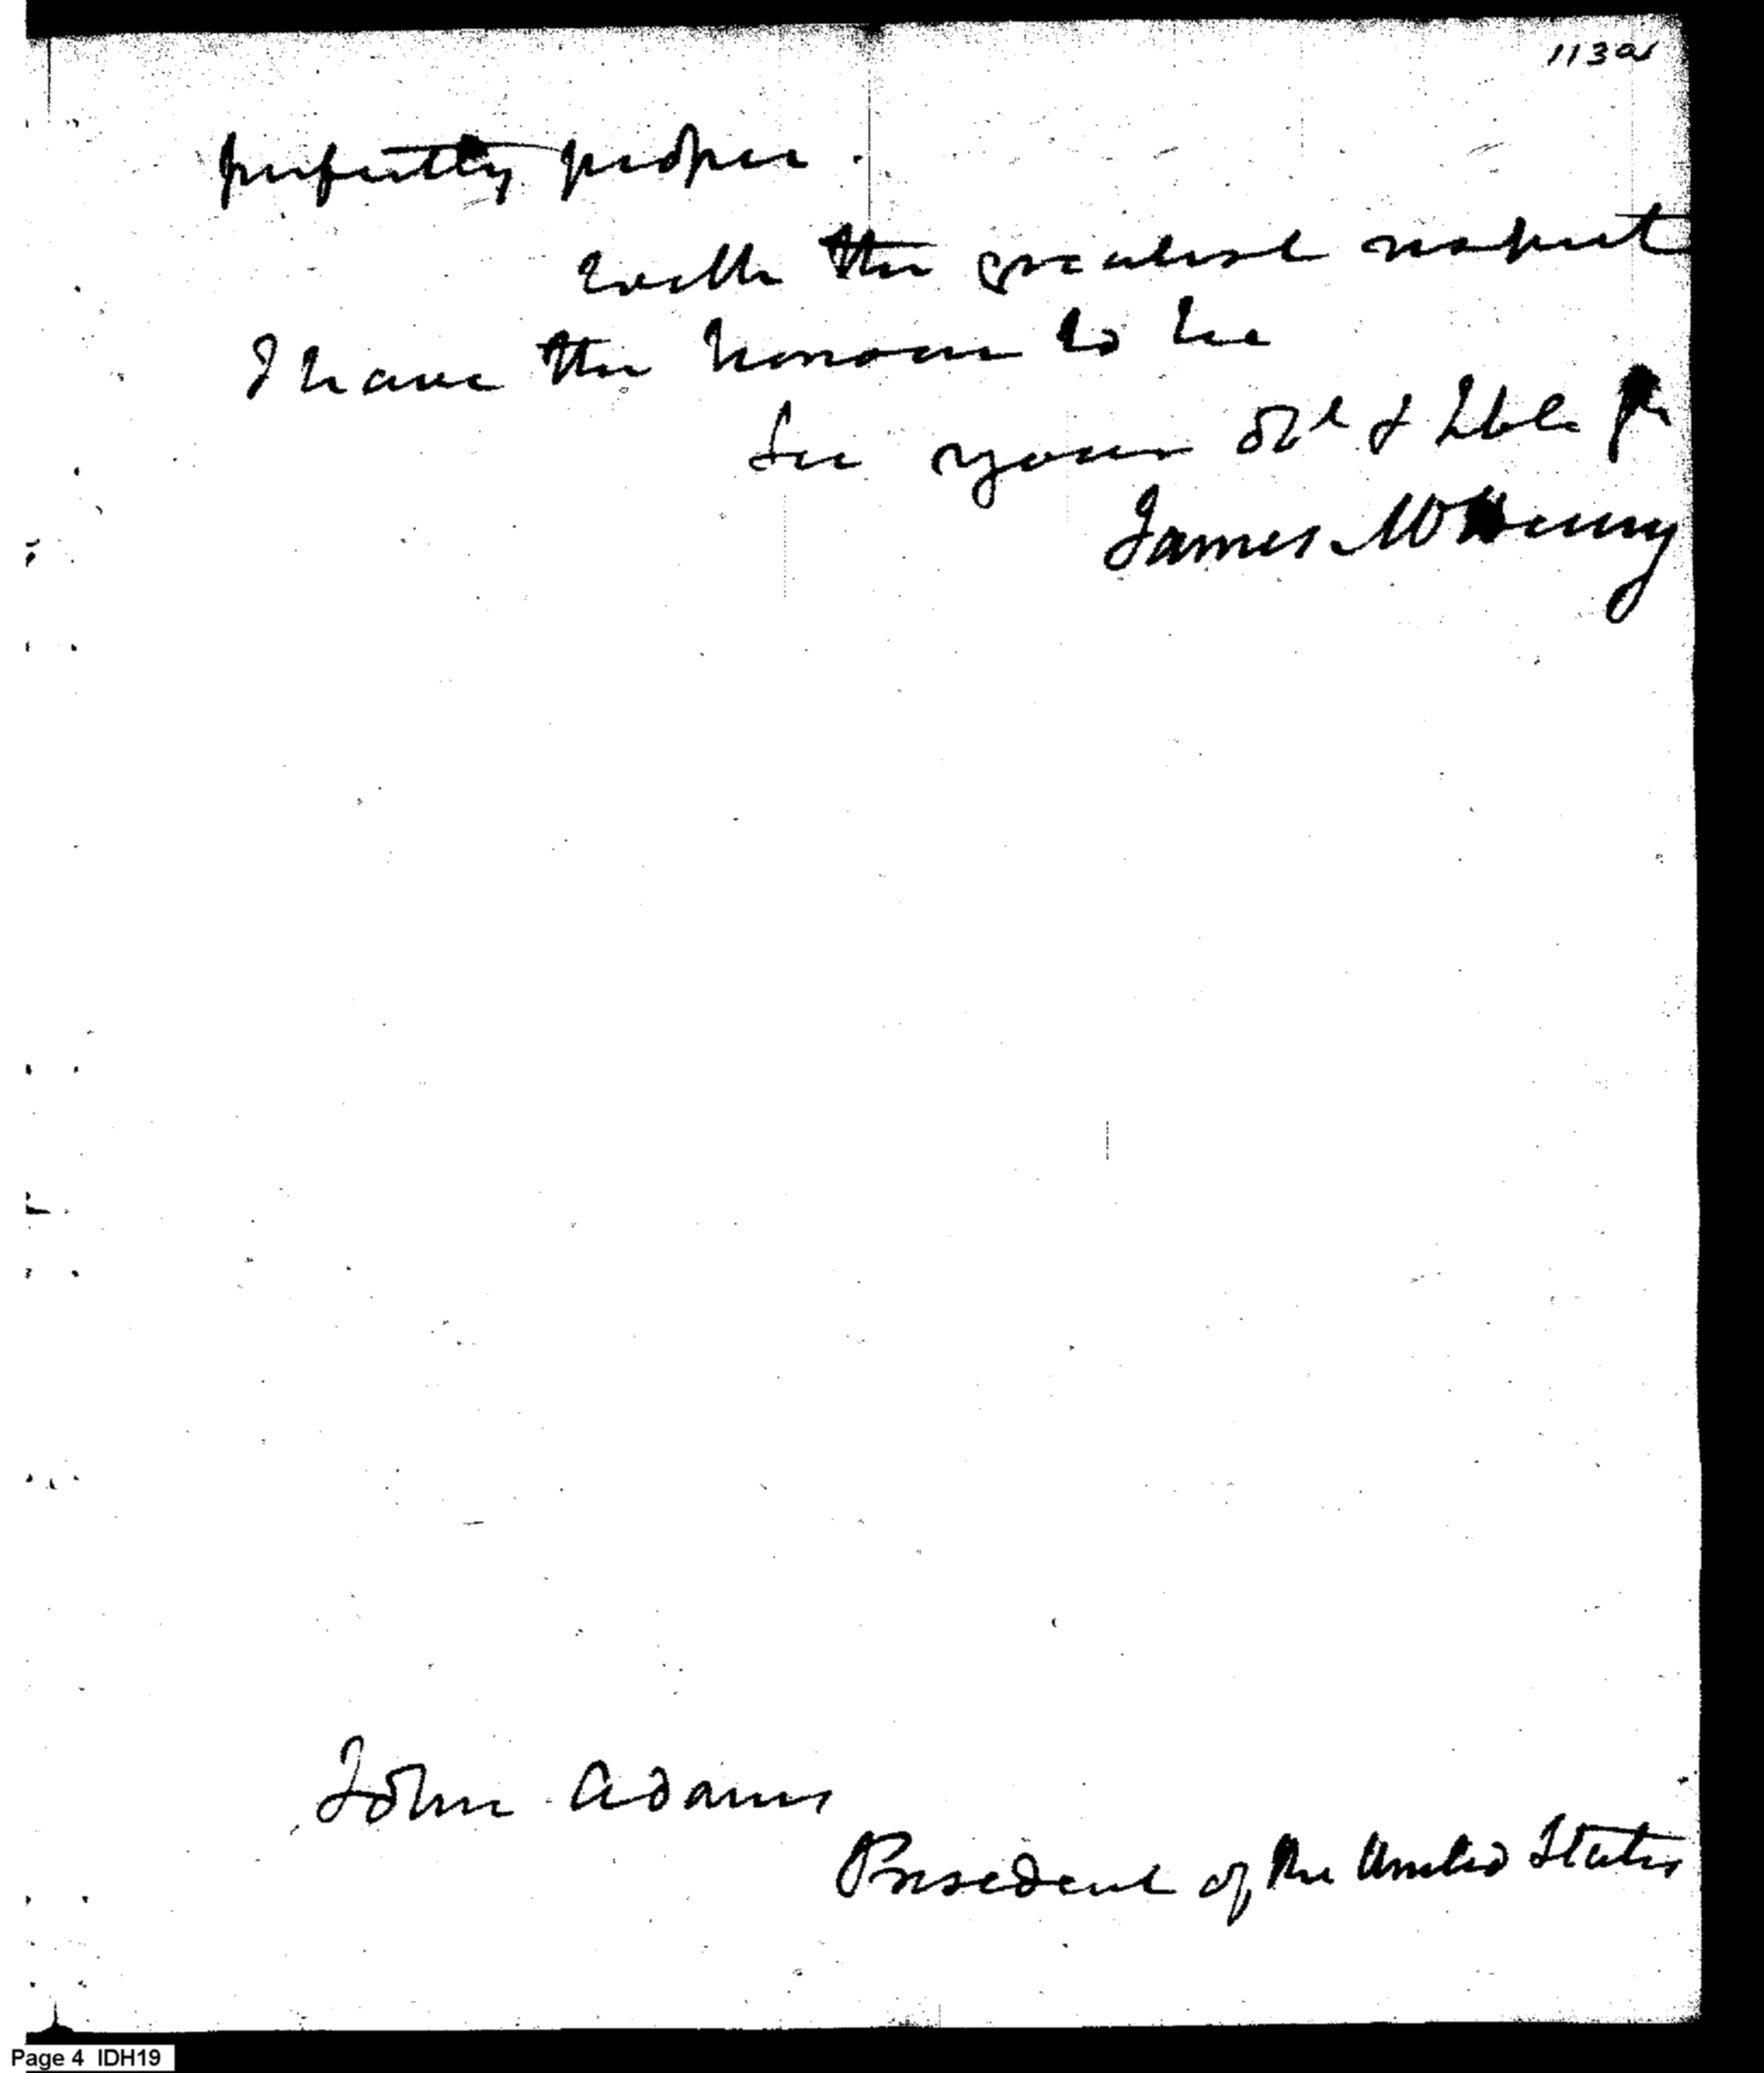 113a
perfectly proper.
with the greatest respect
I have the honour to be
Sir your Obt & Hble
James McHenry
John Adams
President of the United States
Page 4 IDH19